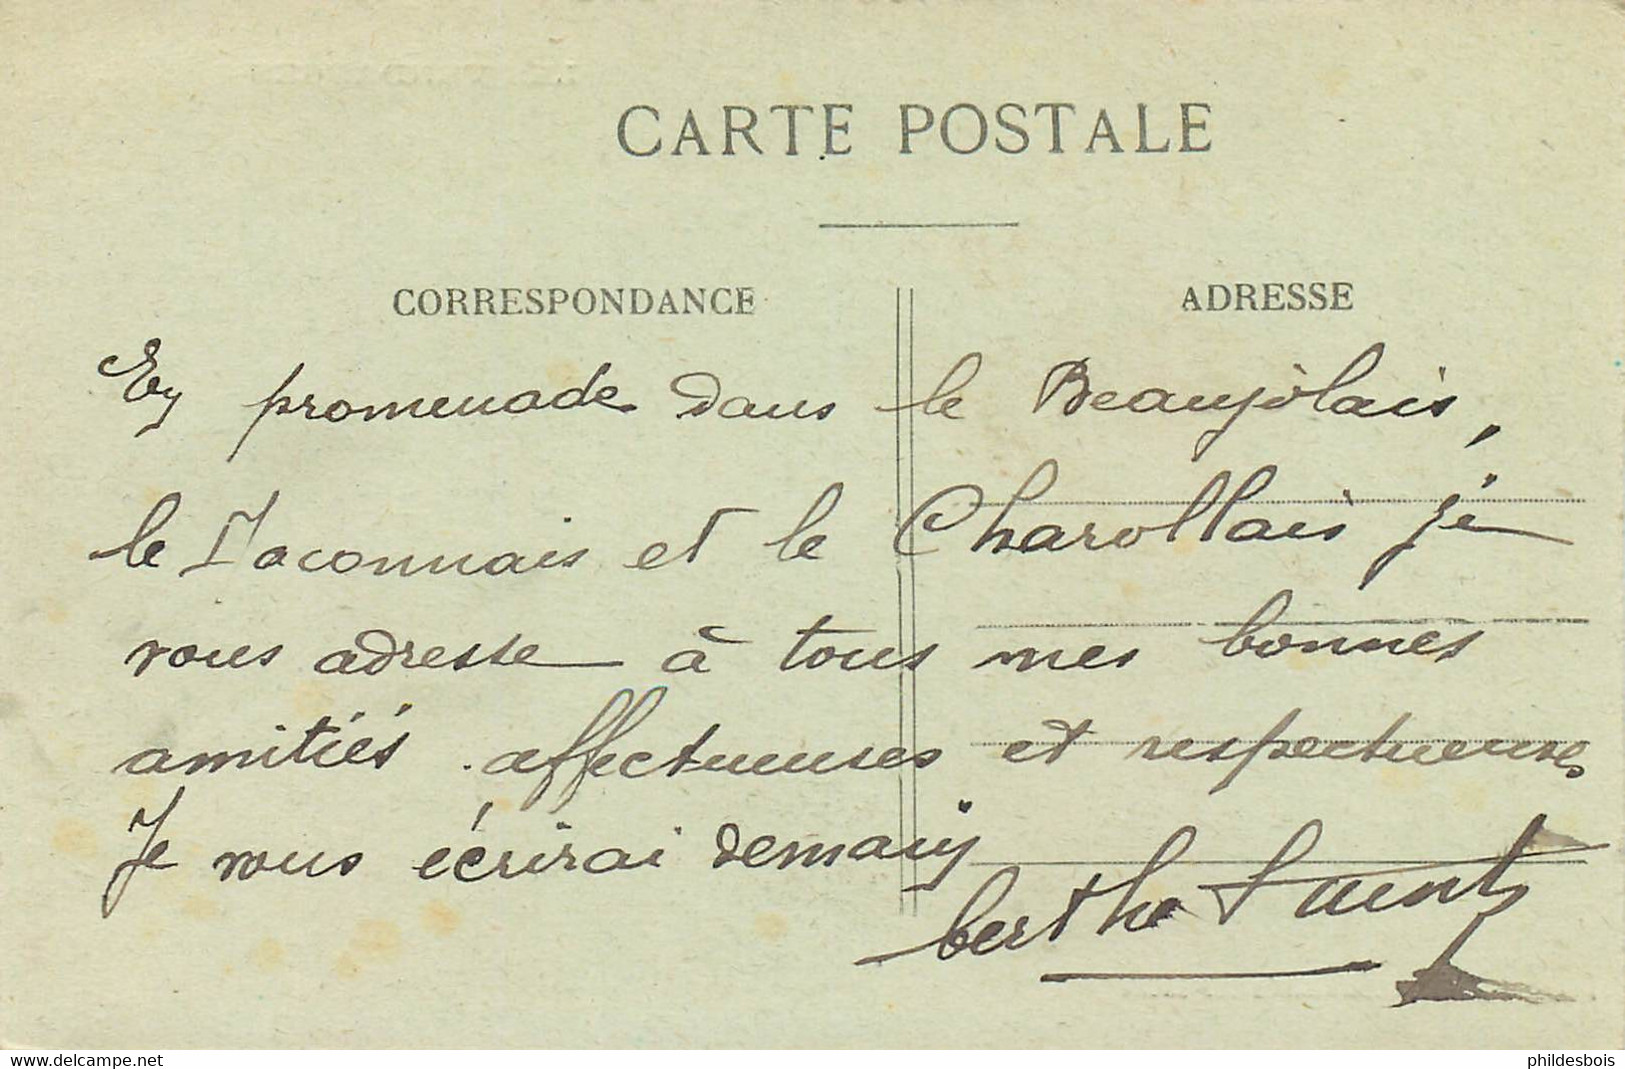 CARTE POSTALE
CORRESPONDANCE ADRESSE
En promenade dans le Beaujolais,
le Maconnais et le Charollais je
vous adresse à tous mes bonnes
amitiés affectueuses et respectueuses
Je vous écrirai demain
berthe
delcampe.net phildesbois